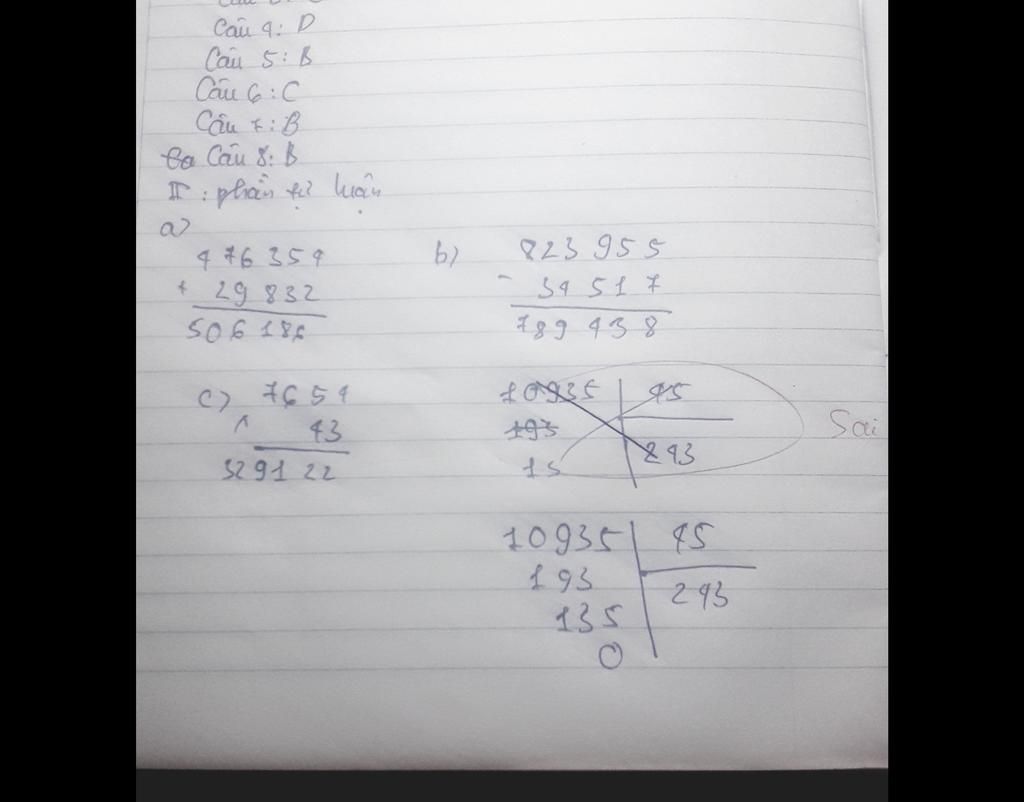 Câu 4: D
Câu 5: B
Câu 6: C
Câu 7: B
Câu 8: B
II: phần tự luận
a)
476 354
+ 29 832
506 186
b) 823 955
- 34 517
789 438
c) 7654
x 43
329122
10935 45
193 243
15
Sai
10935 45
193 243
135
0